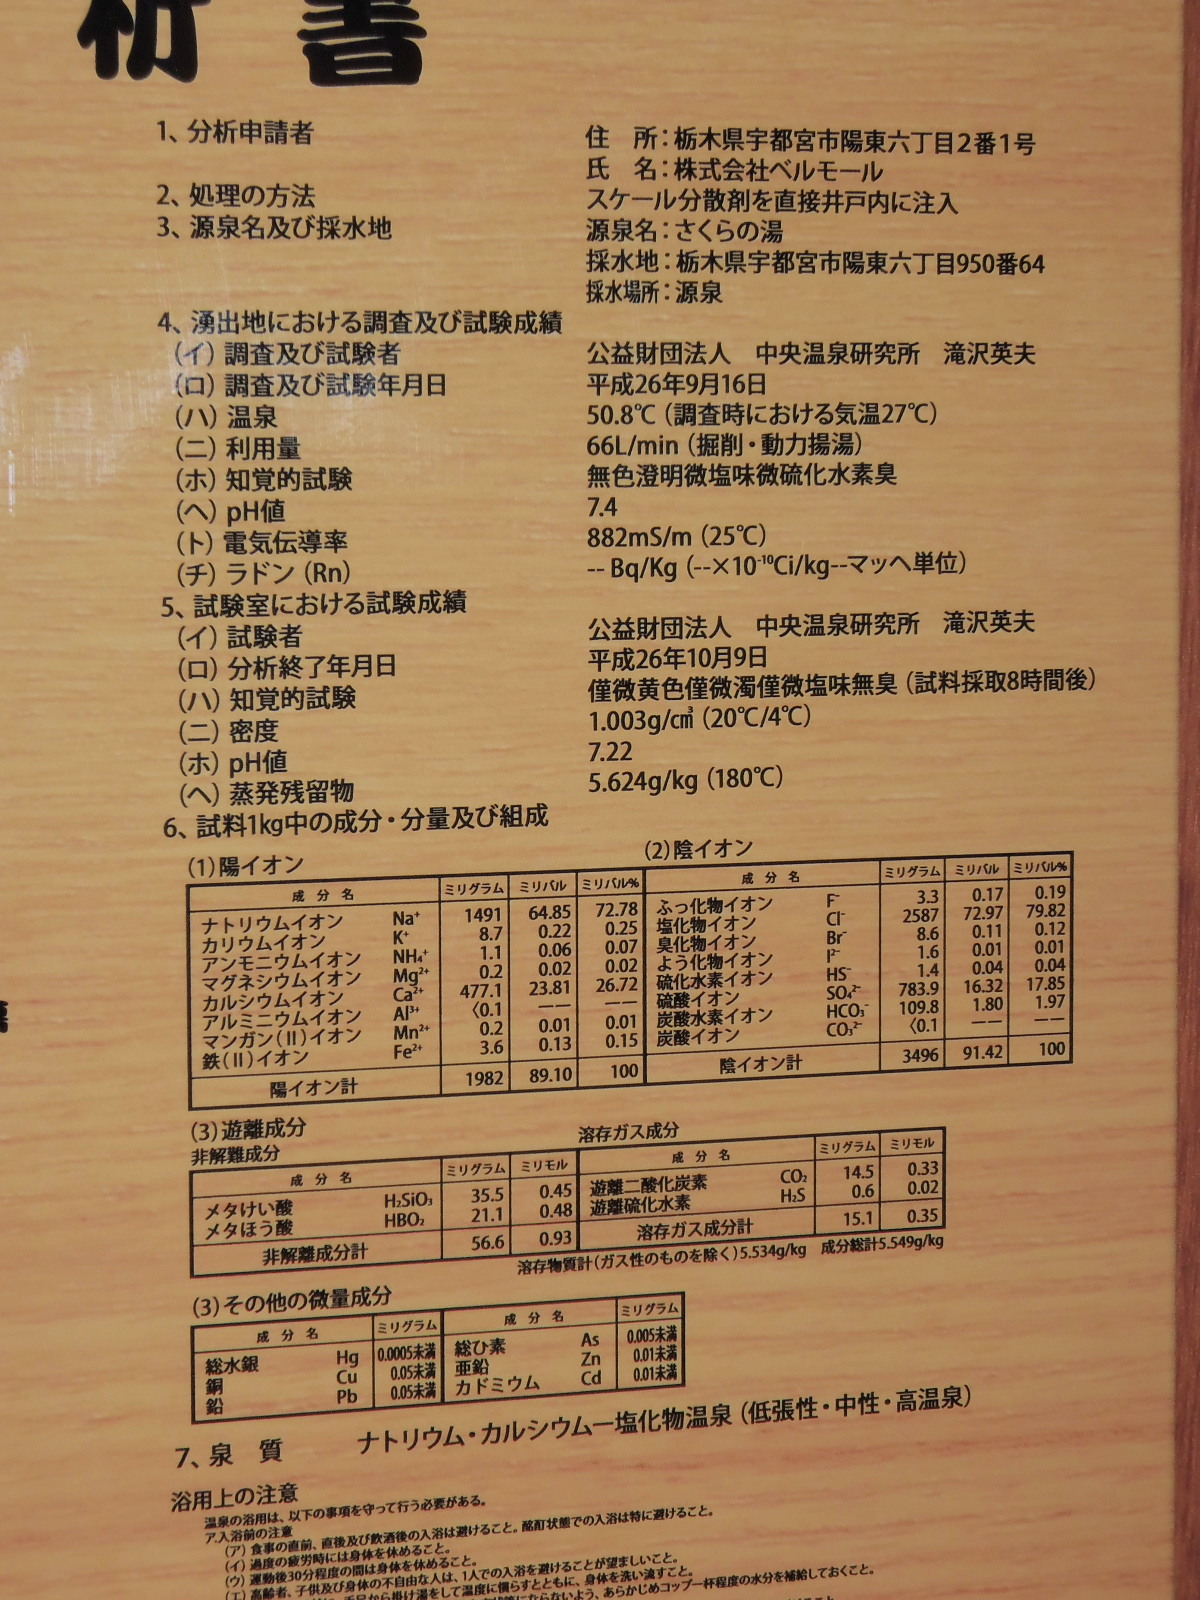 析 書
1、分析申請者
住　所：栃木県宇都宮市陽東六丁目2番1号
氏　名：株式会社ベルモール
2、処理の方法　スケール分散剤を直接井戸内に注入
3、源泉名及び採水地　源泉名：さくらの湯
採水地：栃木県宇都宮市陽東六丁目950番64
採水場所：源泉
4、湧出地における調査及び試験成績
（イ）調査及び試験者　公益財団法人　中央温泉研究所　滝沢英夫
（ロ）調査及び試験年月日　平成26年9月16日
（ハ）温泉　50.8℃（調査時における気温27℃）
（ニ）利用量　66L/min（掘削・動力揚湯）
（ホ）知覚的試験　無色澄明微塩味微硫化水素臭
（ヘ）pH値　7.4
（ト）電気伝導率　882mS/m（25℃）
（チ）ラドン（Rn）　-- Bq/Kg（--×10⁻¹⁰Ci/kg--マッヘ単位）
5、試験室における試験成績
（イ）試験者　公益財団法人　中央温泉研究所　滝沢英夫
（ロ）分析終了年月日　平成26年10月9日
（ハ）知覚的試験　僅微黄色僅微濁僅微塩味無臭（試料採取8時間後）
（ニ）密度　1.003g/c㎥（20℃/4℃）
（ホ）pH値　7.22
（ヘ）蒸発残留物　5.624g/kg（180℃）
6、試料1kg中の成分・分量及び組成
(1)陽イオン
成 分 名　ミリグラム　ミリバル　ミリバル%
ナトリウムイオン　Na⁺　1491　64.85　72.78
カリウムイオン　K⁺　8.7　0.22　0.25
アンモニウムイオン　NH₄⁺　1.1　0.06　0.07
マグネシウムイオン　Mg²⁺　0.2　0.02　0.02
カルシウムイオン　Ca²⁺　477.1　23.81　26.72
アルミニウムイオン　Al³⁺　〈0.1　——　——
マンガン(II)イオン　Mn²⁺　0.2　0.01　0.01
鉄(II)イオン　Fe²⁺　3.6　0.13　0.15
陽イオン計　1982　89.10　100
(2)陰イオン
成 分 名　ミリグラム　ミリバル　ミリバル%
ふっ化物イオン　F⁻　3.3　0.17　0.19
塩化物イオン　Cl⁻　2587　72.97　79.82
臭化物イオン　Br⁻　8.6　0.11　0.12
よう化物イオン　I²⁻　1.6　0.01　0.01
硫化水素イオン　HS⁻　1.4　0.04　0.04
硫酸イオン　SO₄²⁻　783.9　16.32　17.85
炭酸水素イオン　HCO₃⁻　109.8　1.80　1.97
炭酸イオン　CO₃²⁻　〈0.1　——　——
陰イオン計　3496　91.42　100
(3)遊離成分
非解難成分
成 分 名　ミリグラム　ミリモル
メタけい酸　H₂SiO₃　35.5　0.45
メタほう酸　HBO₂　21.1　0.48
非解離成分計　56.6　0.93
溶存ガス成分
成 分 名　ミリグラム　ミリモル
遊離二酸化炭素　CO₂　14.5　0.33
遊離硫化水素　H₂S　0.6　0.02
溶存ガス成分計　15.1　0.35
溶存物質計(ガス性のものを除く)5.534g/kg　成分総計5.549g/kg
(3)その他の微量成分
成 分 名　ミリグラム　成 分 名　ミリグラム
総水銀　Hg　0.0005未満　総ひ素　As　0.005未満
銅　Cu　0.05未満　亜鉛　Zn　0.01未満
鉛　Pb　0.05未満　カドミウム　Cd　0.01未満
7、泉　質　ナトリウム・カルシウム—塩化物温泉（低張性・中性・高温泉）
浴用上の注意
温泉の浴用は、以下の事項を守って行う必要がある。
ア.入浴前の注意
（ア）食事の直前、直後及び飲酒後の入浴は避けること。酩酊状態での入浴は特に避けること。
（イ）過度の疲労時には身体を休めること。
（ウ）運動後30分程度の間は身体を休めること。
（エ）高齢者、子供及び身体の不自由な人は、1人での入浴を避けることが望ましいこと。
手足から掛け湯をして温度に慣らすとともに、身体を洗い流すこと。
にならないよう、あらかじめコップ一杯程度の水分を補給しておくこと。